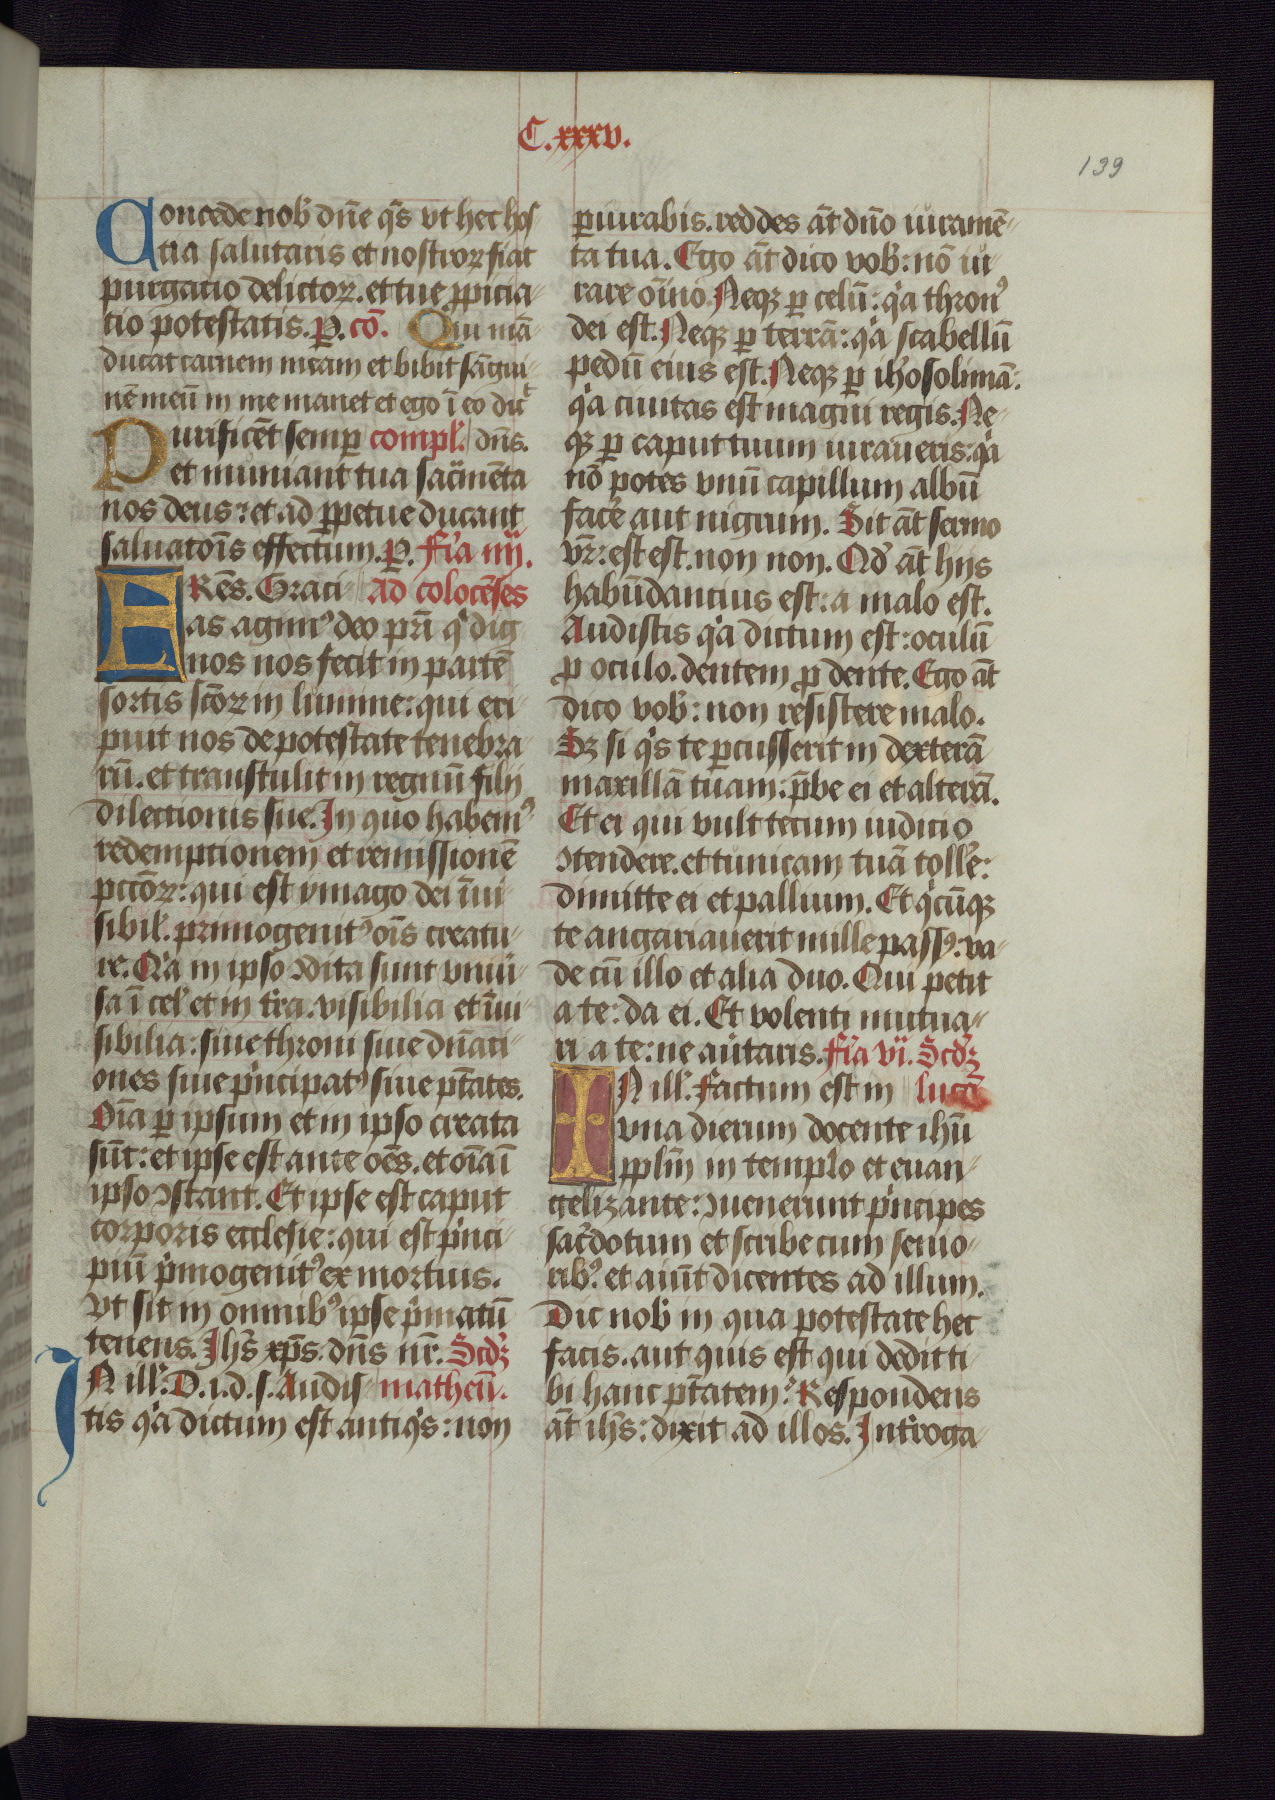 C.xxxv.
139
Concede nob' dn̄e q̄s vt hec hos
tia salutaris et nostroꝝ fiat
purgacio delictoꝝ. et tue ꝓpicia-
tio potestatis. P. cō. Qui mā-
ducat carnem meam et bibit sāgui-
nē meū in me manet et ego ī eo dic̄
Purificēt semꝑ compl'. dn̄s.
et muniant tua sac̄mēta
nos deus: et ad ꝑpetue ducant
saluatōis effectum. P. Fīa iiij.
FRēs. Graci- Ad colocēses
as agim⁹ deo pr̄i q' dig
nos nos fecit in partē
sortis sc̄oꝝ in lumine: qui eri-
puit nos de potestate tenebra
rū. et transtulit in regnū filij
dilectionis sue. In quo habem⁹
redemptionem et remissionē
pcc̄oꝝ: qui est ymago dei īui-
sibil'. primogenit⁹ oīs creatu-
re. Qa in ipso ꝯdita sunt vniū-
sa ī cel' et in t'ra. visibilia et īui-
sibilia: siue throni siue dn̄ati-
ones siue p'ncipat⁹ siue ptātes.
Oīa ꝑ ipsum et in ipso creata
sūt: et ipse est ante oēs. et oīa ī
ipso ꝯstant. Et ipse est caput
corporis ecclesie: qui est p'nci-
piū p'mogenit⁹ ex mortuis.
vt sit in omnib⁹ ipse p'matū
tenens. Ihs̄ xp̄s. dn̄s nr̄. Scdꝫ
IN ill'. D. i. d. s. Audis- matheū.
tis q'a dictum est antiq's: non
ꝑiurabis. reddes āt dn̄o iuramē-
ta tua. Ego āt dico vob': nō iu-
rare oīno. Neqꝫ ꝑ celū: q'a thron⁹
dei est. Neqꝫ ꝑ terrā: q'a scabellū
pedū eius est. Neqꝫ ꝑ iherosolimā:
q'a ciuitas est magni regis. Ne-
qꝫ ꝑ caput tuum iuraueris: q'a
nō potes vnū capillum albū
fac'e aut nigrum. Sit āt sermo
vr̄: est est. non non. Qd' āt hijs
habūdancius est: a malo est.
Audistis q'a dictum est: oculū
ꝓ oculo. dentem ꝓ dente. Ego āt
dico vob': non resistere malo.
Sꝫ si q's te ꝑcusserit in dexterā
maxillā tuam: p̄be ei et alterā.
Et ei qui vult tecum iudicio
ꝯtendere. et tunicam tuā toll'e:
dimitte ei et pallium. Et q'cūqꝫ
te angariauerit mille pass⁹. va-
de cū illo et alia duo. Qui petit
a te: da ei. Et volenti mutua-
ri a te: ne aūtaris. Fīa vi. Scdꝫ
IN ill'. Factum est in lucā
vna dierum docente ihū
pplm̄ in templo et euan-
gelizante: ꝯuenerunt p'ncipes
sac'dotum et scribe cum senio-
rib⁹. et aiūt dicentes ad illum.
Dic nob' in qua potestate hec
facis. aut quis est qui dedit ti-
bi hanc ptātem? Respondens
āt ihs̄: dixit ad illos. Int'roga-